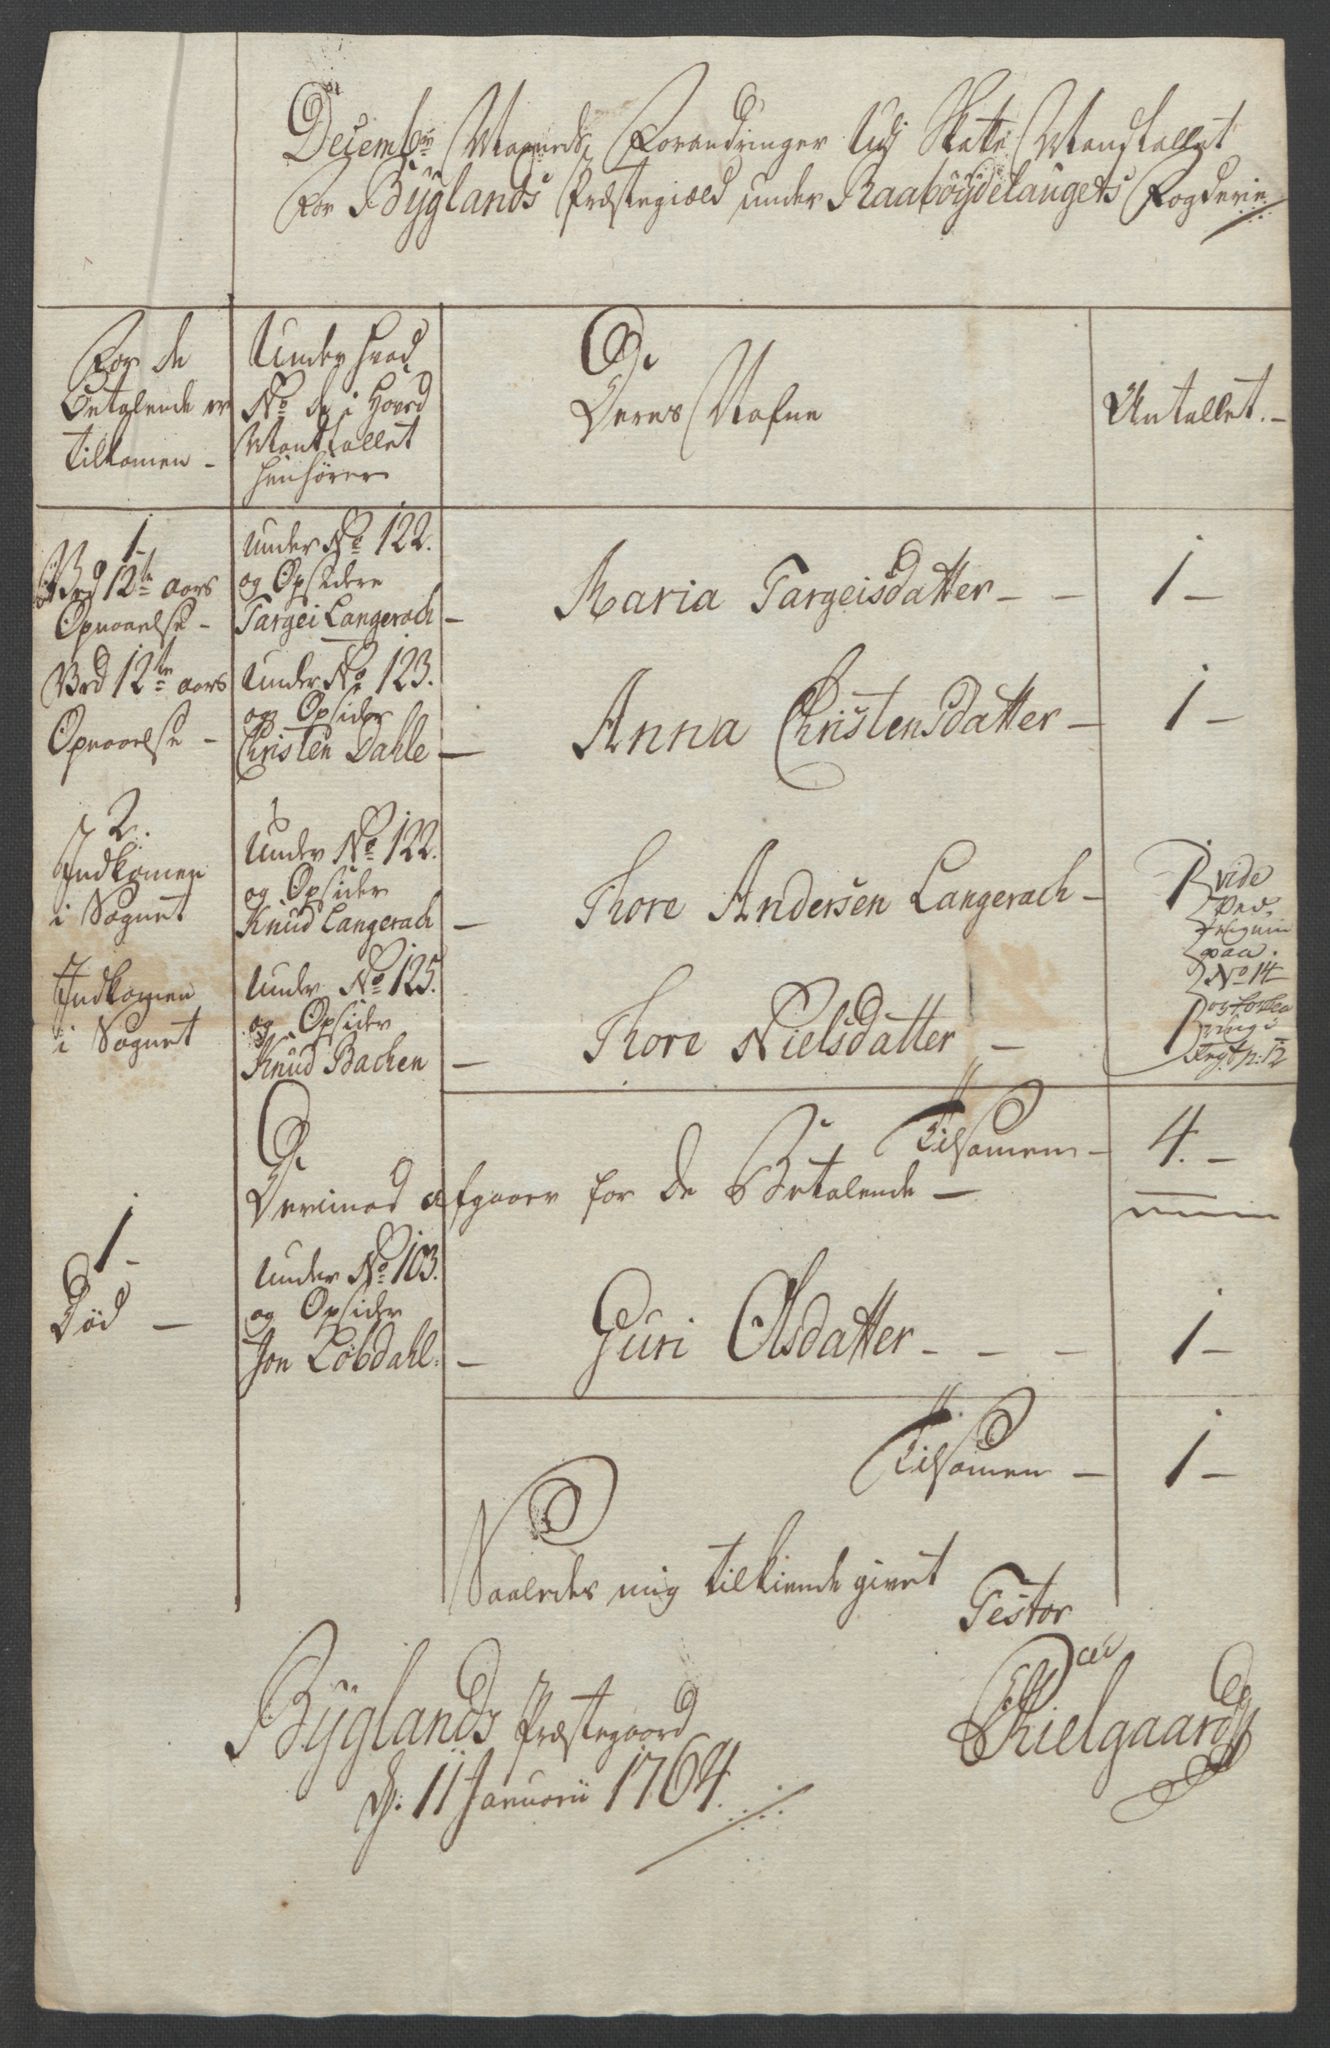 Decembr Maaneds Forandringer Udj Skatte Mandtallet
For Byglands Præstegield under Raabøydelaugets Fogderie
For de
betalende er
tilkomen -
Under hvad
No de i Hoved
Mantallet
henhører
Deres Nafne
Antallet. -
1
Ved 12te aars
Opnaaelse -
Under No 122.
og Opsidere
Targei Langerach -
Maria Targeisdatter - - 1 -
Ved 12te aars
Opnaaelse -
Under No 123.
og Opsider
Christen Dahle -
Anna Christensdatter - 1 -
2.
Indkomen
i Sognet
Under No 122.
og Opsider
Knud Langerach -
Thore Andersen Langerach - 1
vide
paa
No 14
Indkomen
i Sognet
Under No 125.
og Opsider
Knud Bachen -
Thore Nielsdatter - 1
p: 12
Tilsamen - 4. -
Derimod afgaaer for de Betalende -
1 -
Død -
Under No 103.
og Opsider
Jon Løbdahl. -
Guri Olsdatter - - - 1 -
Tilsamen - 1 -
Saaledes mig tilkiende givet
Testor
Byglands Præstegaard
d. 11 Januarii 1764.
Kielgaard